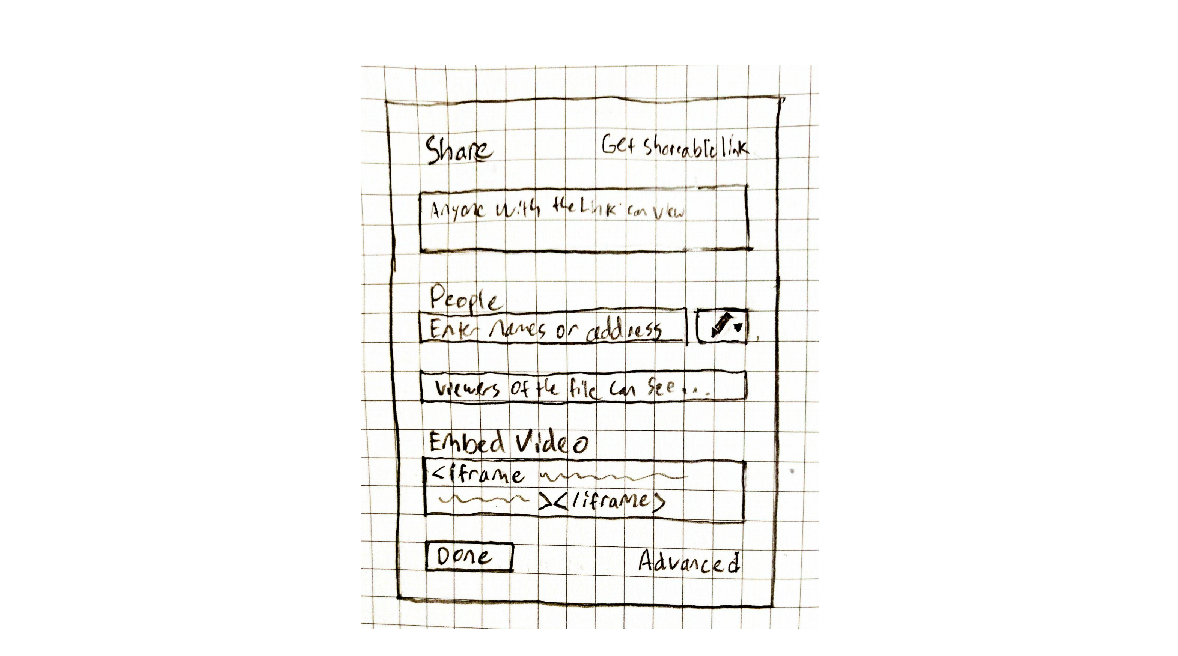 Share
Get shareable link
Anyone with the Link can view
People
Enter names or address
viewers of the file can see...
Embed Video
<iframe
></iframe>
Done
Advanced